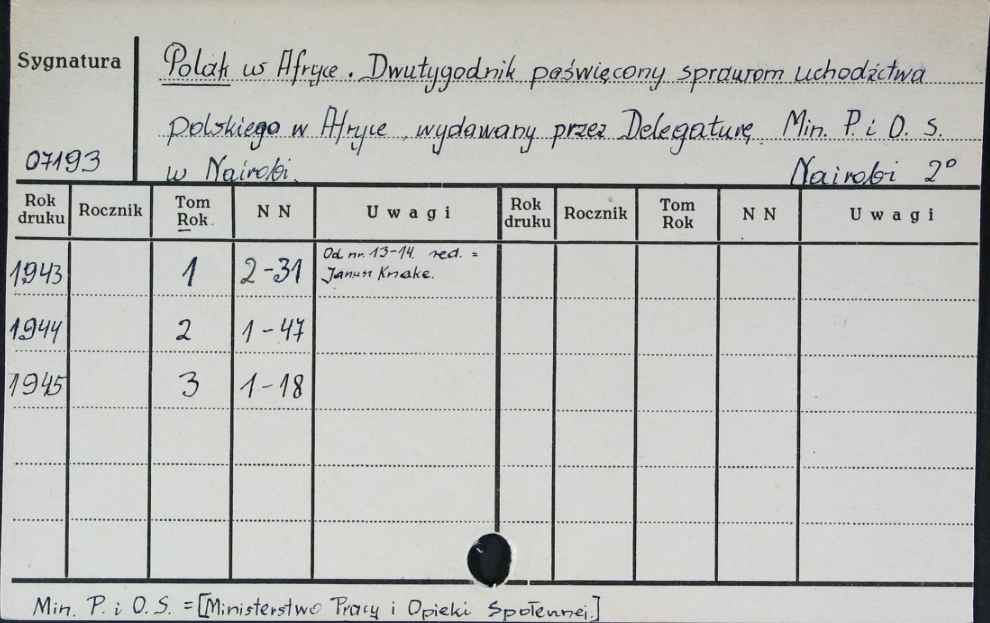 Sygnatura
Polak w Afryce. Dwutygodnik poświęcony sprawom uchodźctwa
polskiego w Afryce, wydawany przez Delegaturę Min. P. i O. S.
07193
w Nairobi. Nairobi 2°
Rok druku Rocznik Tom Rok NN Uwagi Rok druku Rocznik Tom Rok NN Uwagi
1943 1 2-31 Od nr. 13-14. red. =
Janusz Kmake.
1944 2 1-47
1945 3 1-18
Min. P. i O.S. = [Ministerstwo Pracy i Opieki Społennej.]